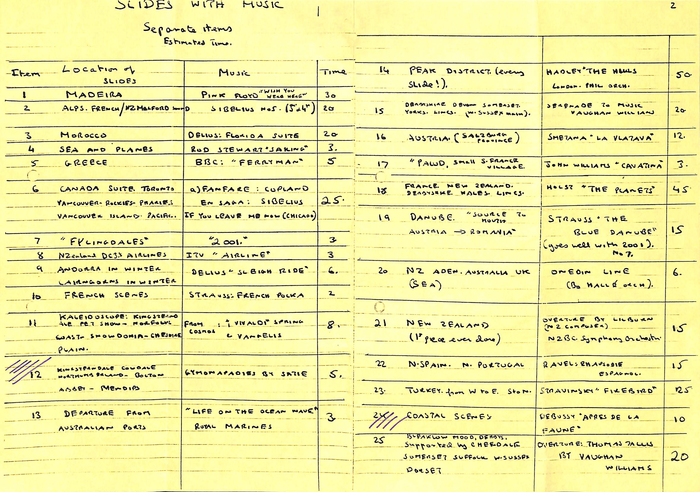 SLIDES WITH MUSIC 1
Separate items
Estimated Time.
Item Location of SLIDES Music Time
1 MADEIRA PINK FLOYD "WISH YOU WERE HERE" 30
2 ALPS. FRENCH/NZ MILFORD SOUND SIBELIUS NO5. 20
3 MOROCCO DELIUS: FLORIDA SUITE 20
4 SEA AND PLANES ROD STEWART "SAILING" 3.
5 GREECE BBC: "FERRYMAN" 5
6 CANADA SUITE. TORONTO a) FANFARE: COPLAND
VANCOUVER. ROCKIES. PRARIES EN SAGA: SIBELIUS 25.
VANCOUVER ISLAND. PACIFIC. IF YOU LEAVE ME NOW (CHICAGO)
7 "FYLINGDALES" "2001." 3
8 NZealand DC3S AIRLINES ITV "AIRLINE" 3
9 ANDORRA IN WINTER DELIUS "SLEIGH RIDE" 6.
CAIRNGORMS IN WINTER
10 FRENCH SCENES STRAUSS: FRENCH POLKA 2
11 KALEIDOSCOPE: KINGSTEIGNTON
PET SHOW - NORFOLK FROM: "VIVALDI" SPRING 8.
COAST - SNOWDONIA - CHESHIRE COSMOS & VANGELIS
PLAIN.
12 COWDALE
NORTHUMBERLAND. BOLTON GYMOMAPADIES BY SATIE 5.
ABBEY - MENDIPS
13 DEPARTURE FROM "LIFE ON THE OCEAN WAVE" 3
AUSTRALIAN PORTS ROYAL MARINES
2
14 PEAK DISTRICT (every HADLEY "THE HILLS 50
slide!). LONDON. PHIL ORCH.
15 DERBYSHIRE DEVON SOMERSET. SERENADE TO MUSIC 20
YORKS. LINCS. (W. SUSSEX MAIN). VAUGHAN WILLIAM
16 AUSTRIA (SALZBURG PROVINCE) SMETANA "LA VLATAVA" 12.
17 small S. FRANCE VILLAGE JOHN WILLIAMS "CAVATINA" 3.
18 FRANCE NEW ZEALAND. HOLST "THE PLANETS" 45
DERBYSHIRE WALES. LINCS.
19 DANUBE. "SOURCE TO MOUTH STRAUSS "THE
AUSTRIA → ROMANIA" BLUE DANUBE" 15
(goes well with 2001).
No 7.
20 NZ ADEN. AUSTRALIA UK ONEDIN LINE 6.
(SEA) (BY HALLÉ ORCH).
21 NEW ZEALAND OVERTURE BY LILBURN
(1st piece ever done) (NZ COMPOSER) 15
NZBC Symphony Orchestra
22 N. SPAIN. N. PORTUGAL RAVEL: RHAPSODIE 15
ESPAGNOL.
23. TURKEY. from W to E. STRAVINSKY "FIREBIRD" 25
24 COASTAL SCENES DEBUSSY "APRES DE LA 10
FAUNE"
25 MOOD, OVERTURE: THOMAS TALLIS
supported by CHEEDALE BY VAUGHAN 20
SOMERSET SUFFOLK W. SUSSEX WILLIAMS
DORSET